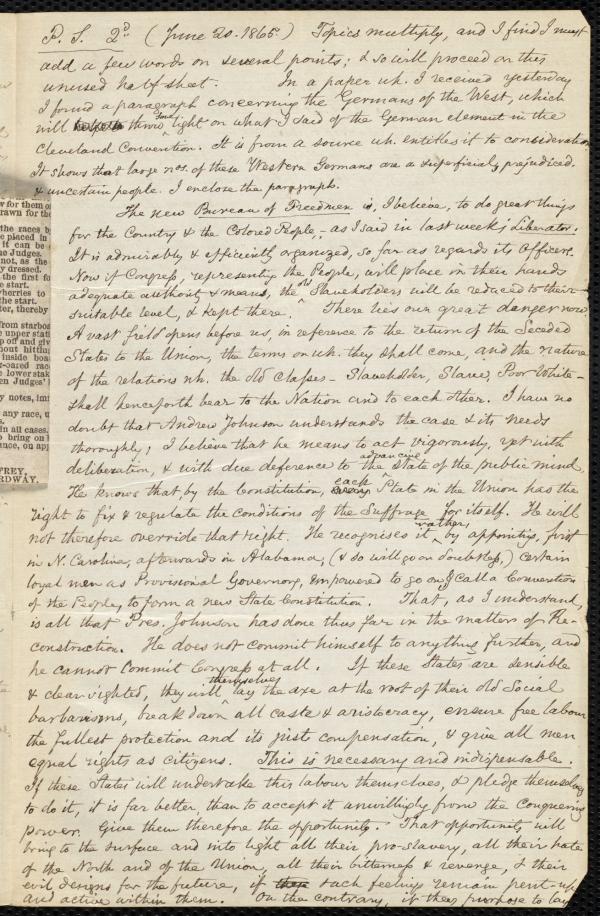 P. S. 2d (June 20. 1865.) Topics multiply, and I find I must
add a few words on several points; & so will proceed on this
unused half sheet. In a paper wh. I received yesterday
I found a paragraph concerning the Germans of the West, which
will throw some light on what I said of the German element in the
Cleveland Convention. It is from a source wh. entitles it to consideration.
It shows that large nos. of these Western Germans are a superficial, prejudiced,
& uncertain people. I enclose the paragraph.
The new Bureau of Freedmen is, I believe, to do great things
for the Country & the Colored People, - as I said in last week's Liberator.
It is admirably & efficiently organized, so far as regards its Officers.
Now if Congress, representing the People, will place in their hands
adequate authority & means, the old Slaveholders will be reduced to their
suitable level, & kept there. There lies our great danger now.
A vast field opens before us, in reference to the return of the Seceded
States to the Union, the terms on wh. they shall come, and the nature
of the relations wh. the old Classes - Slaveholder, Slave, Poor White -
shall henceforth bear to the Nation and to each other. I have no
doubt that Andrew Johnson understands the case & its needs
thoroughly; I believe that he means to act vigorously, yet with
deliberation, & with due deference to the advancing state of the public mind.
He knows that by the Constitution, each State in the Union has the
right to fix & regulate the conditions of the Suffrage for itself. He will
not therefore override that right. He recognises it rather, by appointing, first
in N. Carolina, afterwards in Alabama, (& so will go on doubtless,) certain
loyal men as Provisional Governors, empowered to go on & call a Convention
of the People, to form a new State Constitution. That, as I understand,
is all that Pres. Johnson has done thus far in the matter of Re-
construction. He does not commit himself to anything further, and
he cannot commit Congress at all. If these States are sensible
& clear-sighted, they will themselves lay the axe at the root of their old Social
barbarisms, break down all caste & aristocracy, ensure free labour
the fullest protection and its just compensation, & give all men
equal rights as citizens. This is necessary and indispensable.
If these States will undertake this labour themselves, & pledge themselves
to do it, it is far better, than to accept it unwillingly from the Conquering
power. Give them therefore the opportunity. That opportunity will
bring to the surface and into light all their pro-slavery, all their hate
of the North and of the Union, all their bitterness & revenge, & their
evil designs for the future, if such feelings remain pent-up
and active within them. On the contrary, if they purpose to lay
w for them o
rawn for the
the races b
e placed in
it can be
he Judges.
not, as the
y dressed.
the first fo
e start.
wherries to
the start.
ter, thereby
from starboa
e upper stat
p off and giv
hout hitting
inside boa
x-oared rac
e lower stak
en Judges'
y notes, imm
any race, u
s.
in all cases.
o bring on
nce, on app
FREY,
RDWAY.